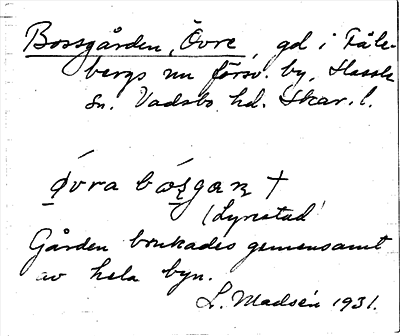 Bossgården, Övre, gd i Fåle-
bergs nu försv. by, Hassle
sn. Vadsbo hd. Skar. l.
øvra bosgan †
(Lyrestad
Gården brukades gemensamt
av hela byn.
L. Madsén 1931.